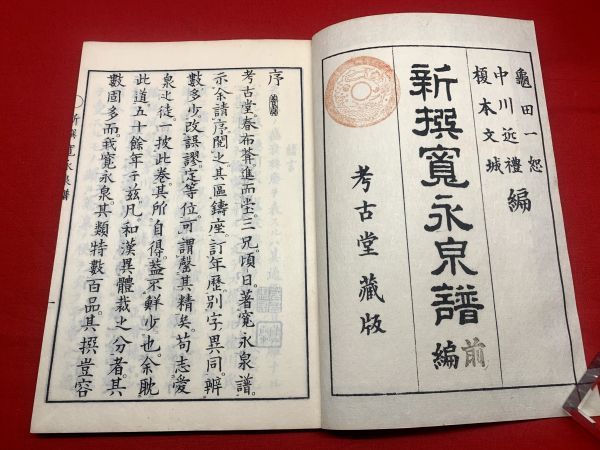 龜田一恕
中川近禮
榎本文城
編
新撰寬永泉譜
前編
考古堂藏版
序
考古堂。春布菴。進而堂。三兄頃日。著寬永泉譜。
示余請序。閱之其區鑄座。訂年歷。別字異同。辨
數多少。改誤謬。定等位。可謂罄其精矣。苟志愛
泉之徒。一披此卷。其所自得。蓋不鮮少也。余耽
此道五十餘年于玆。凡和漢異體裁之分者。其
數固多。而我寬永泉。其類特數百品。其撰豈容
新撰寬永泉譜
一